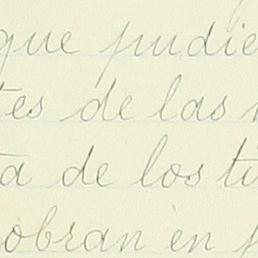 que pudie
tes de las
ta de los ti
obran en